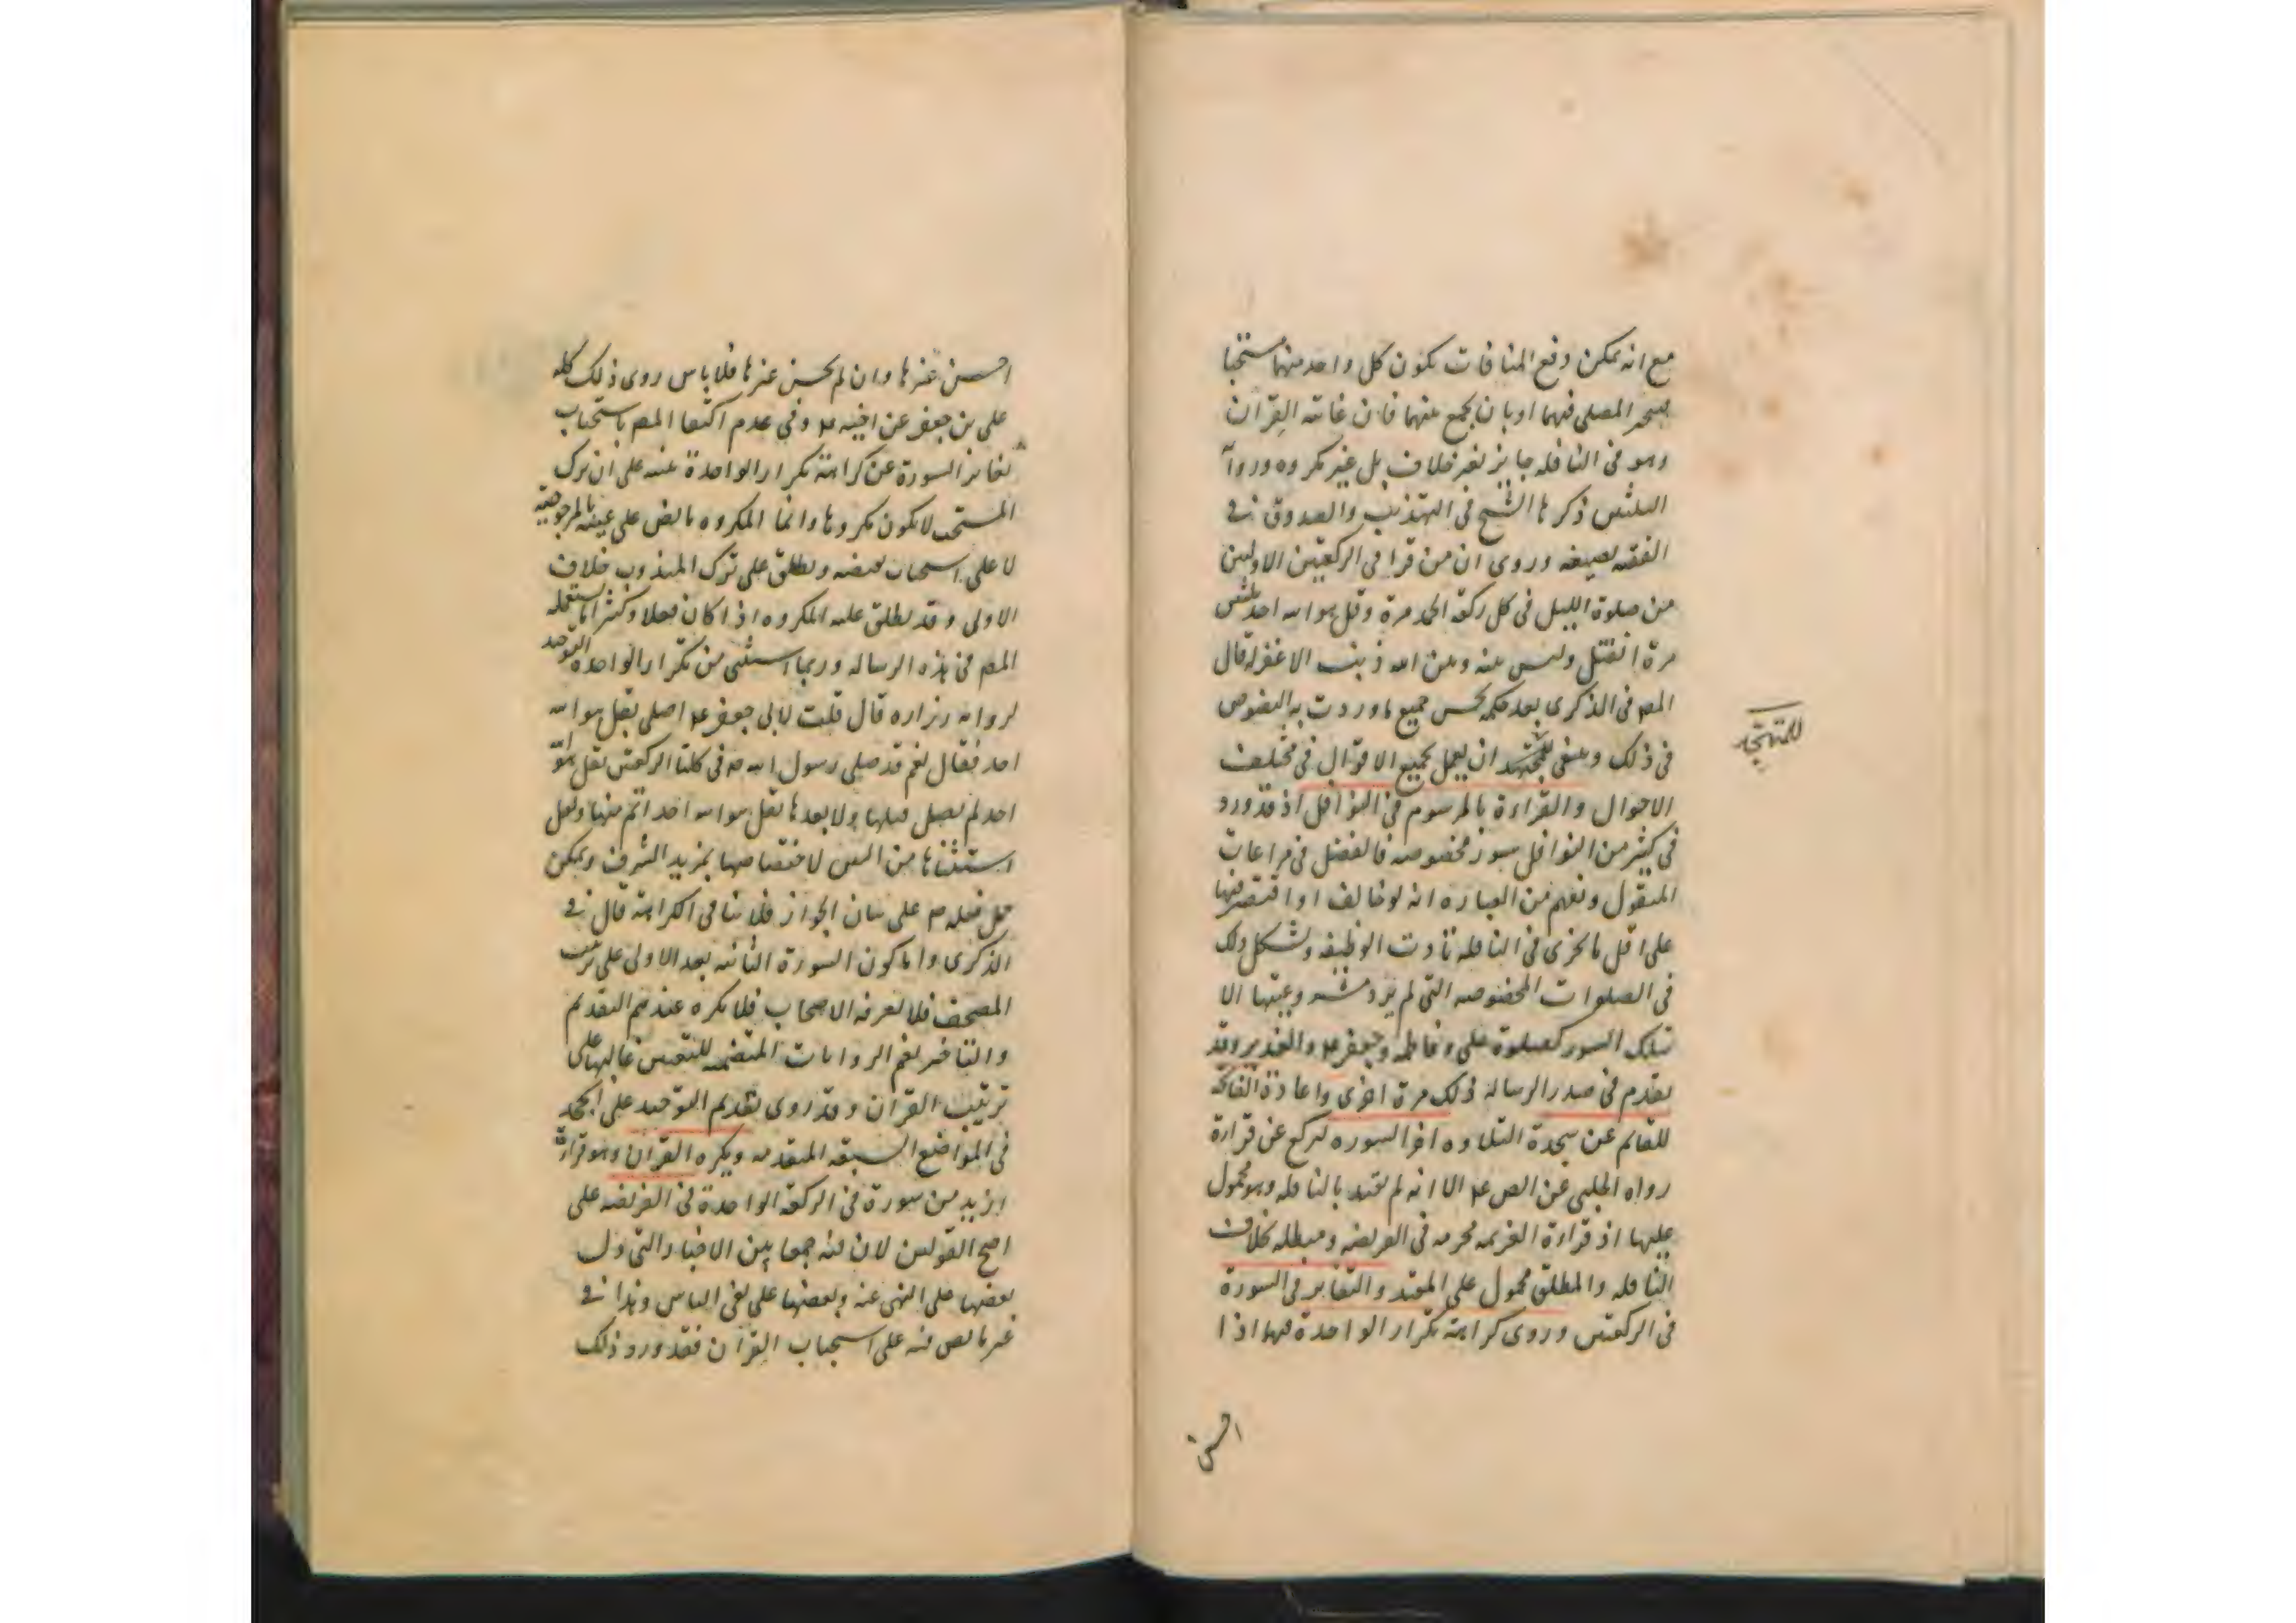 مع انه يمكن دفع المنافات بكون كل واحد منهما مستحبا
فيتخير المصلى فيهما او بان يجمع بينهما فان غايته القرآن
وهو فى النافله جايز بغير خلاف بل غير مكروه ورواية
الثلثين ذكرها الشيخ فى التهذيب والصدوق فى
الفقيه بصيغه وروى ان من قرا فى الركعتين الاوليين
من صلوة الليل فى كل ركعة الحمد مرة وقل هو الله احد ثلثين
مرة انفتل وليس بينه وبين الله ذنب الا غفر له قال
المصـ فى الذكرى بعد حكمه بحسن جميع ما وردت به النصوص
فى ذلك وينبغى للمتهجد ان يعمل بجميع الاقوال فى مختلف
للمتهجد
الاحوال والقراءة بالمرسوم فى النوافل اذ قد ورد
فى كثير من النوافل سور مخصوصه فالفضل فى مراعات
المنقول ويفهم من العباره انه لو خالف او اقتصر فيها
على اقل ما يجزى فى النافله تادت الوظيفه ويشكل ذلك
فى الصلوات المخصوصه التى لم يرد شرعيتها الا
بتلك السور كصلوة على وفاطمه وجعفر ع والغدير وقد
تقدم فى صدر الرساله ذلك مرة اخرى واعادة الفاتحة
للقائم عن سجدة التلاوه اخر السوره ليركع عن قراءة
رواه الحلبى عن الصـ ع الا انه لم يقيد بالنافله وهو محمول
عليها اذ قراءة العزيمه محرمه فى الفريضه ومبطله بخلاف
النافله والمطلق محمول على المقيد والتغاير فى السورة
فى الركعتين وروى كراهة تكرار الواحدة فيهما اذا
احسن
احسن غيرها وان لم يحسن غيرها فلا باس روى ذلك كله
على بن جعفر عن اخيه ع وفى عدم اكتفا المصـ باستحباب
تغاير السورة عن كراهة تكرار الواحدة تنبيه على ان ترك
المستحب لا يكون مكروها وانما المكروه ما نص على عينه بالمرجوحية
لا على استحباب نقيضه ويطلق على ترك المندوب خلاف
الاولى وقد يطلق عليه المكروه اذا كان فعلا وكثيرا ما يستعمله
المصـ فى هذه الرساله وربما استثنى من تكرار الواحدة التوحيد
لرواية زراره قال قلت لابى جعفر ع اصلى بقل هو الله
احد فقال نعم قد صلى رسول الله ص فى كلتا الركعتين بقل هو الله
احد لم يصل قبلها ولا بعدها بقل هو الله احد اتم منها ولعل
استثناها من البين لاختصاصها بمزيد الشرف ويمكن
حمل فعله ص على بيان الجواز فلا ينافى الكراهة قال فى
الذكرى واما كون السورة الثانيه بعد الاولى على ترتيب
المصحف فلا يعرفه الاصحاب فلا يكره عندهم التقديم
والتاخير نعم الروايات المتضمنه للتعيين غالبها على
ترتيب القرآن وقد روى تقديم التوحيد على الجحد
فى المواضع السبعه المتقدمه ويكره القران وهو قراءة
ازيد من سورة فى الركعة الواحدة فى الفريضه على
اصح القولين لان فيه جمعا بين الاخبار التى دل
بعضها على النهى عنه وبعضها على نفى الباس وهذا فى
غير ما نص فيه على استحباب القرآن فقد ورد ذلك